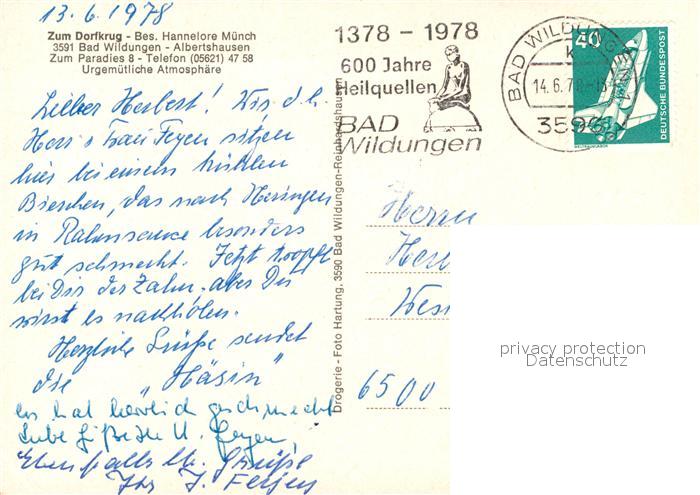 13.6.1978
Zum Dorfkrug - Bes. Hannelore Münch
3591 Bad Wildungen - Albertshausen
Zum Paradies 8 - Telefon (05621) 47 58
Urgemütliche Atmosphäre
Lieber Herbert! Wir, d.h.
Herr u. Frau Feyen sitzen
hier bei einem kühlen
Bierchen, das nach Heringen
in Rahmsauce besonders
gut schmeckt. Jetzt tropft
bei Dir der Zahn, aber Du
wirst es nachholen.
Herzliche Grüße sendet
die "Häsin"
es hat herrlich geschmeckt
Liebe Grüße U. Feyen
Ebenfalls Grüße
Ihr J. Feyen
Drogerie - Foto Hartung, 3590 Bad Wildungen-Reinhardshausen
1378 - 1978
600 Jahre
Heilquellen
BAD
Wildungen
BAD WILDUNGEN 1
14.6.78
3590
40
DEUTSCHE BUNDESPOST
Herrn
6500
privacy protection
Datenschutz